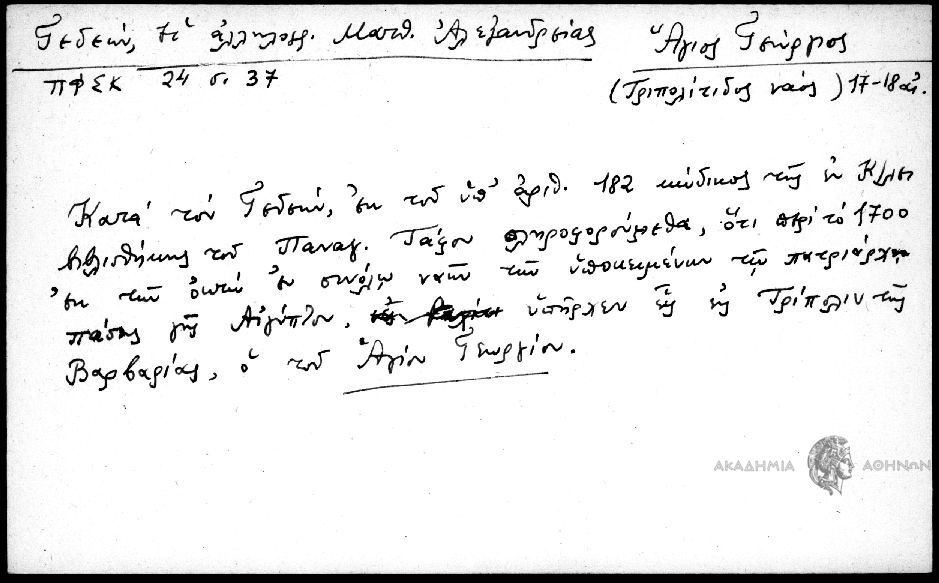 Γεδεών, Ἡ ἀλληλογρ. Ματθ. Ἀλεξανδρείας
Ἅγιος Γεώργιος
ΠΦΣΚ 24 σ. 37
(Τριπολίτιδος ναός) 17-18 αἰ.
Κατά τον Γεδεών, ἐκ τοῦ ὑπ' ἀριθ. 182 κώδικος τῆς ἐν Κ/λει
βιβλιοθήκης τοῦ Παναγ. Τάφου πληροφορούμεθα, ὅτι περί τό 1700
ἐκ τῶν ὀκτώ ἐν συνόλῳ ναῶν τῶν ὑποκειμένων τῷ πατριάρχῃ
πάσης γῆς Αἰγύπτου, ὑπῆρχεν εἷς εἰς Τρίπολιν τῆς
Βαρβαρίας, ὁ τοῦ Ἁγίου Γεωργίου.
ΑΚΑΔΗΜΙΑ ΑΘΗΝΩΝ